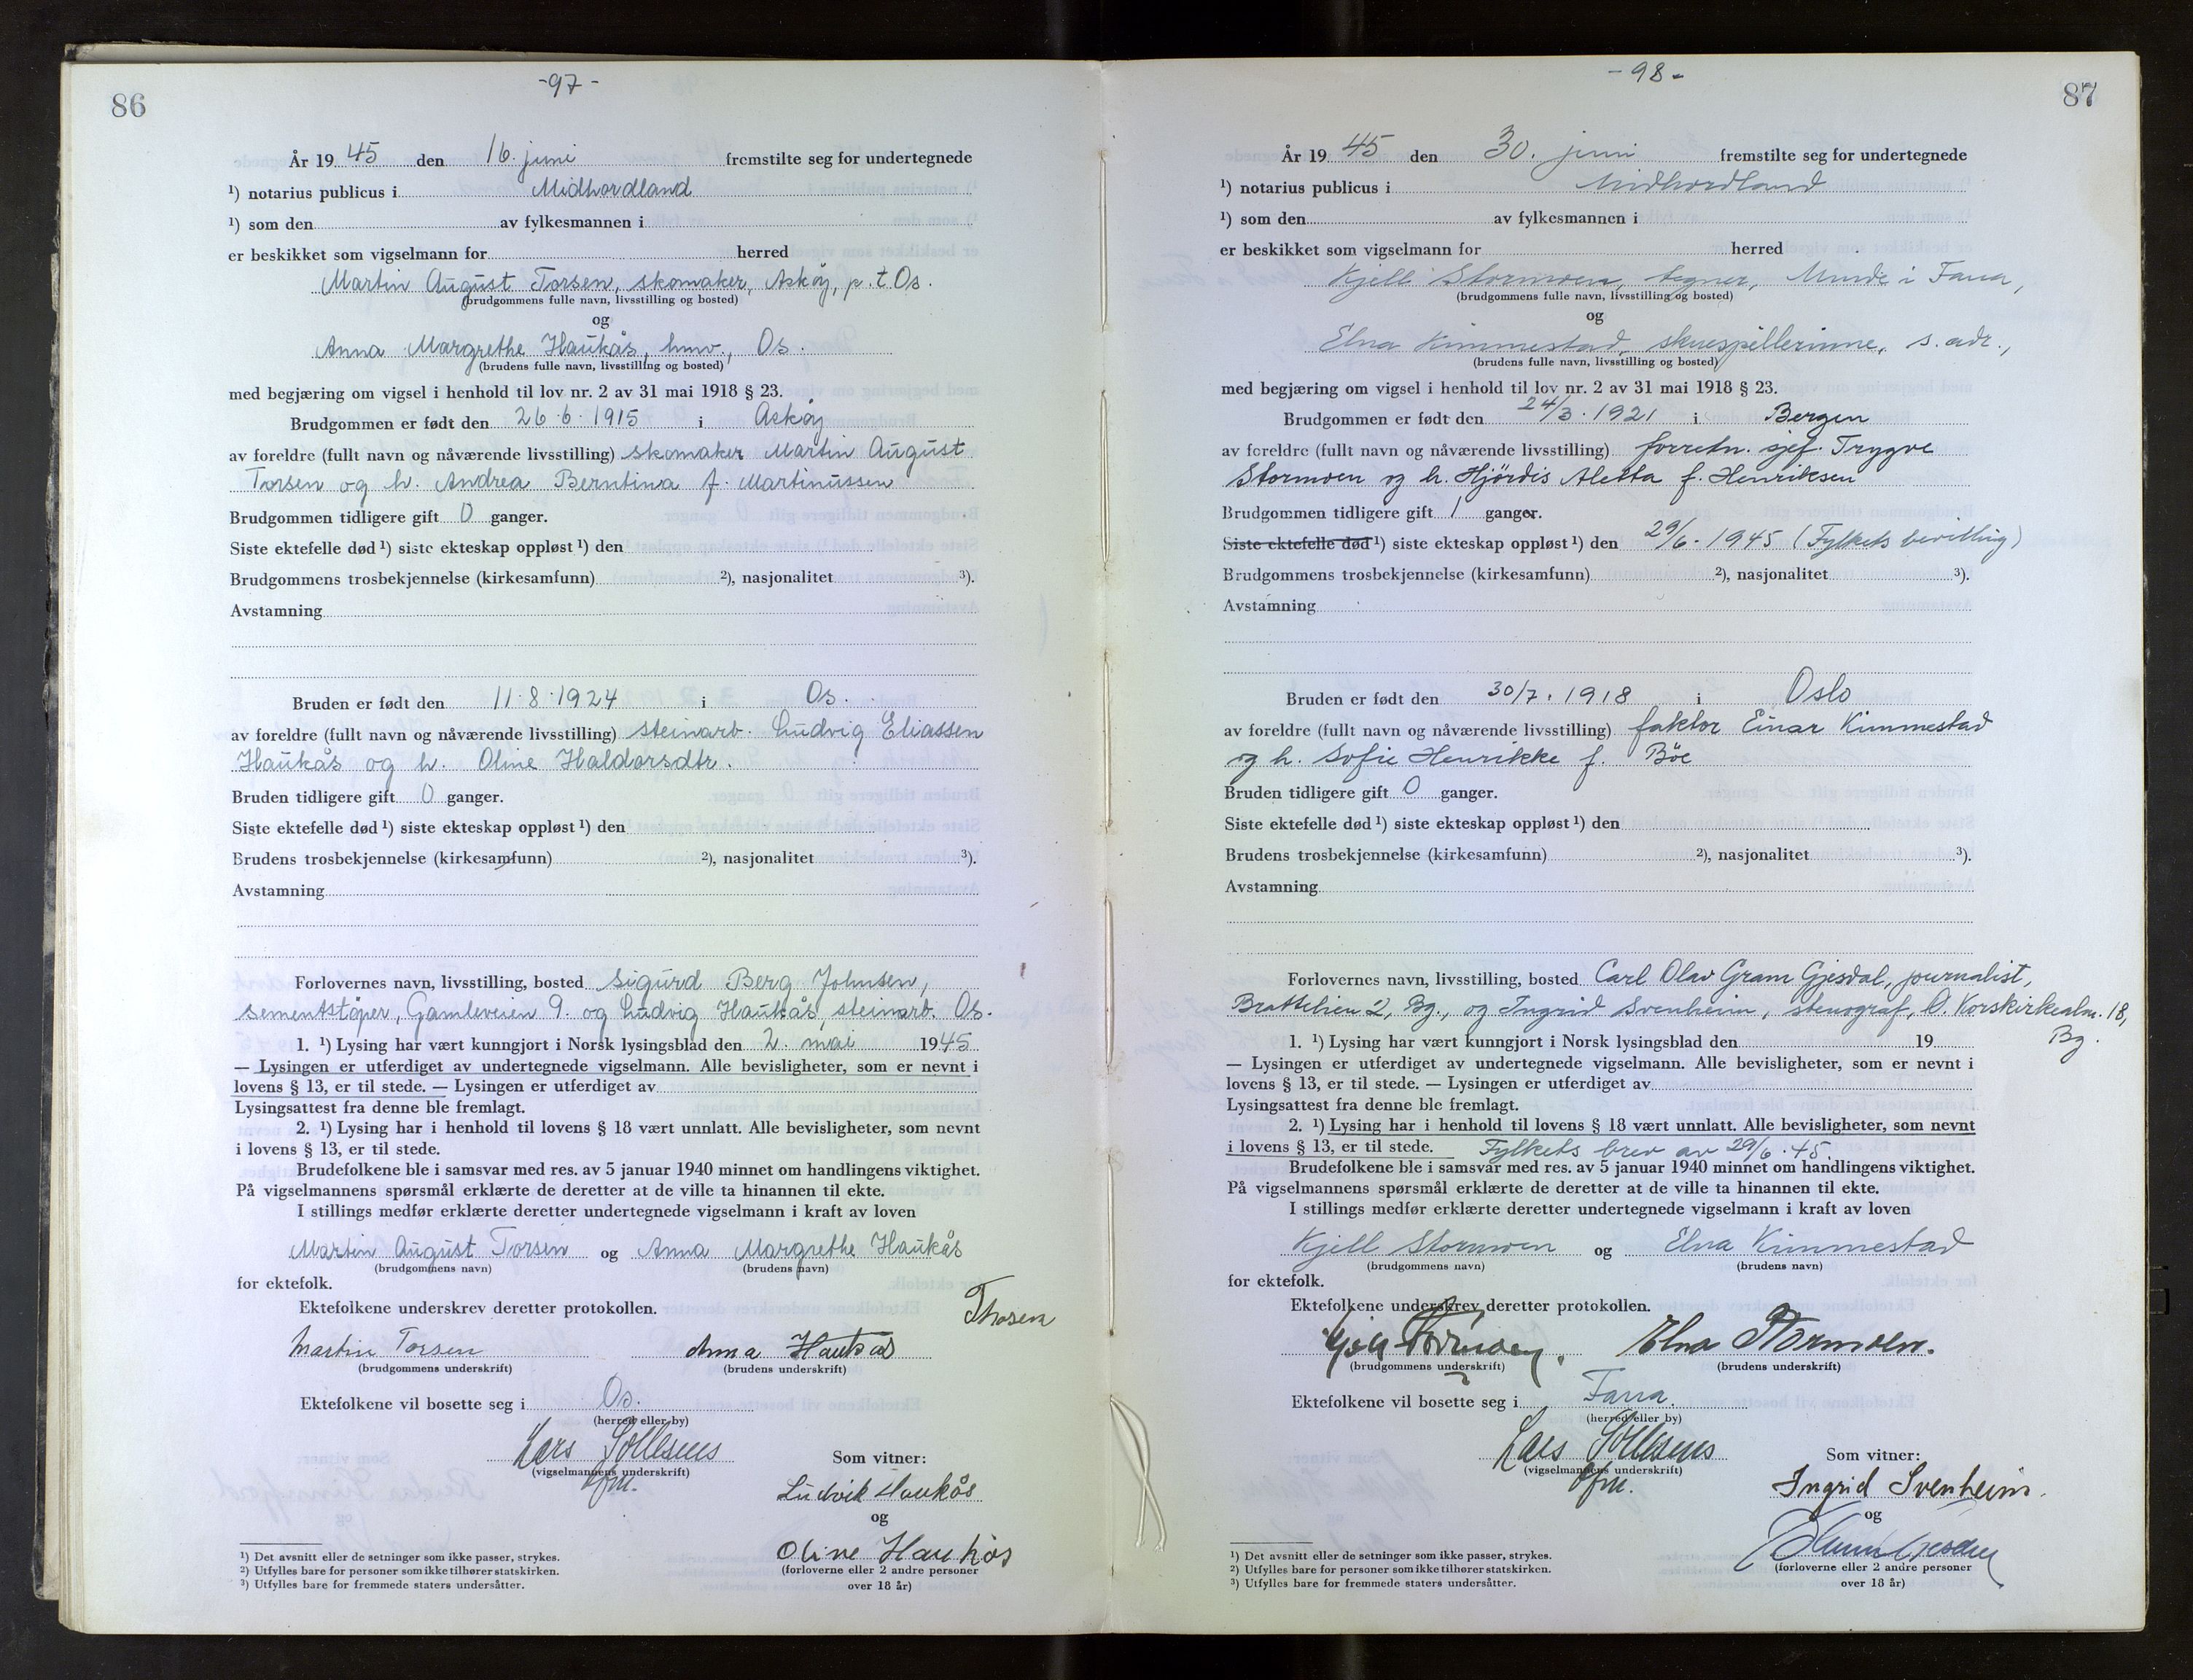 86
-97-
År 19 45 den 16. juni fremstilte seg for undertegnede
¹) notarius publicus i Midhordland
¹) som den av fylkesmannen i
er beskikket som vigselmann for herred
Martin August Torsen, skomaker, Askøy, p. t. Os.
(brudgommens fulle navn, livsstilling og bosted)
og
Anna Margrethe Haukås, hmv., Os.
(brudens fulle navn, livsstilling og bosted)
med begjæring om vigsel i henhold til lov nr. 2 av 31 mai 1918 § 23.
Brudgommen er født den 26.6.1915 i Askøy
av foreldre (fullt navn og nåværende livsstilling) skomaker Martin August
Torsen og h. Andrea Berntina f. Martinussen
Brudgommen tidligere gift 0 ganger.
Siste ektefelle død ¹) siste ekteskap oppløst ¹) den
Brudgommens trosbekjennelse (kirkesamfunn) ²), nasjonalitet ³).
Avstamning
Bruden er født den 11.8.1924 i Os.
av foreldre (fullt navn og nåværende livsstilling) steinarb. Ludvig Eliassen
Haukås og h. Oline Haldorsdtr.
Bruden tidligere gift 0 ganger.
Siste ektefelle død ¹) siste ekteskap oppløst ¹) den
Brudens trosbekjennelse (kirkesamfunn) ²), nasjonalitet ³).
Avstamning
Forlovernes navn, livsstilling, bosted Sigurd Berg Johnsen,
sementstøper, Gamleveien 9. og Ludvig Haukås, steinarb. Os.
1. ¹) Lysing har vært kunngjort i Norsk lysingsblad den 2. mai 1945
— Lysingen er utferdiget av undertegnede vigselmann. Alle bevisligheter, som er nevnt i
lovens § 13, er til stede. — Lysingen er utferdiget av
Lysingsattest fra denne ble fremlagt.
2. ¹) Lysing har i henhold til lovens § 18 vært unnlatt. Alle bevisligheter, som nevnt
i lovens § 13, er til stede.
Brudefolkene ble i samsvar med res. av 5 januar 1940 minnet om handlingens viktighet.
På vigselmannens spørsmål erklærte de deretter at de ville ta hinannen til ekte.
I stillings medfør erklærte deretter undertegnede vigselmann i kraft av loven
Martin August Torsen og Anna Margrethe Haukås
(brudgommens navn) (brudens navn)
for ektefolk.
Ektefolkene underskrev deretter protokollen.
Thosen
Martin Torsen Anna Haukås
(brudgommens underskrift) (brudens underskrift)
Ektefolkene vil bosette seg i Os.
(herred eller by)
Lars Sollesnes
(vigselmannens underskrift)
Som vitner:
Ludvik Haukås
og
Oline Haukås
(forloverne eller 2 andre personer
over 18 år)
¹) Det avsnitt eller de setninger som ikke passer, strykes.
²) Utfylles bare for personer som ikke tilhører statskirken.
³) Utfylles bare for fremmede staters undersåtter.
87
-98-
År 19 45 den 30. juni fremstilte seg for undertegnede
¹) notarius publicus i Midhordland
¹) som den av fylkesmannen i
er beskikket som vigselmann for herred
Kjell Stormoen, tegner, Minde i Fana,
(brudgommens fulle navn, livsstilling og bosted)
og
Elna Kimmestad, skuespillerinne, s. adr.,
(brudens fulle navn, livsstilling og bosted)
med begjæring om vigsel i henhold til lov nr. 2 av 31 mai 1918 § 23.
Brudgommen er født den 24/3.1921 i Bergen
av foreldre (fullt navn og nåværende livsstilling) forretn. sjef Trygve
Stormoen og h. Hjördis Aletta f. Henriksen
Brudgommen tidligere gift 1 ganger.
Siste ektefelle død ¹) siste ekteskap oppløst ¹) den 29/6.1945 (Fylkets bevilling)
Brudgommens trosbekjennelse (kirkesamfunn) ²), nasjonalitet ³).
Avstamning
Bruden er født den 30/7.1918 i Oslo
av foreldre (fullt navn og nåværende livsstilling) faktor Einar Kimmestad
og h. Sofie Henrikke f. Böe
Bruden tidligere gift 0 ganger.
Siste ektefelle død ¹) siste ekteskap oppløst ¹) den
Brudens trosbekjennelse (kirkesamfunn) ²), nasjonalitet ³).
Avstamning
Forlovernes navn, livsstilling, bosted Carl Olav Gram Gjesdal, journalist,
Brattelien 2, Bg., og Ingrid Svenheim, stenograf, Ö. Korskirkealm. 18,
Bg.
1. ¹) Lysing har vært kunngjort i Norsk lysingsblad den 19
— Lysingen er utferdiget av undertegnede vigselmann. Alle bevisligheter, som er nevnt i
lovens § 13, er til stede. — Lysingen er utferdiget av
Lysingsattest fra denne ble fremlagt.
2. ¹) Lysing har i henhold til lovens § 18 vært unnlatt. Alle bevisligheter, som nevnt
i lovens § 13, er til stede. Fylkets brev av 29/6.45.
Brudefolkene ble i samsvar med res. av 5 januar 1940 minnet om handlingens viktighet.
På vigselmannens spørsmål erklærte de deretter at de ville ta hinannen til ekte.
I stillings medfør erklærte deretter undertegnede vigselmann i kraft av loven
Kjell Stormoen og Elna Kimmestad
(brudgommens navn) (brudens navn)
for ektefolk.
Ektefolkene underskrev deretter protokollen.
Kjell Stormoen. Elna Stormoen.
(brudgommens underskrift) (brudens underskrift)
Ektefolkene vil bosette seg i Fana.
(herred eller by)
Lars Sollesnes
(vigselmannens underskrift)
Som vitner:
Ingrid Svenheim.
og
(forloverne eller 2 andre personer
over 18 år)
¹) Det avsnitt eller de setninger som ikke passer, strykes.
²) Utfylles bare for personer som ikke tilhører statskirken.
³) Utfylles bare for fremmede staters undersåtter.